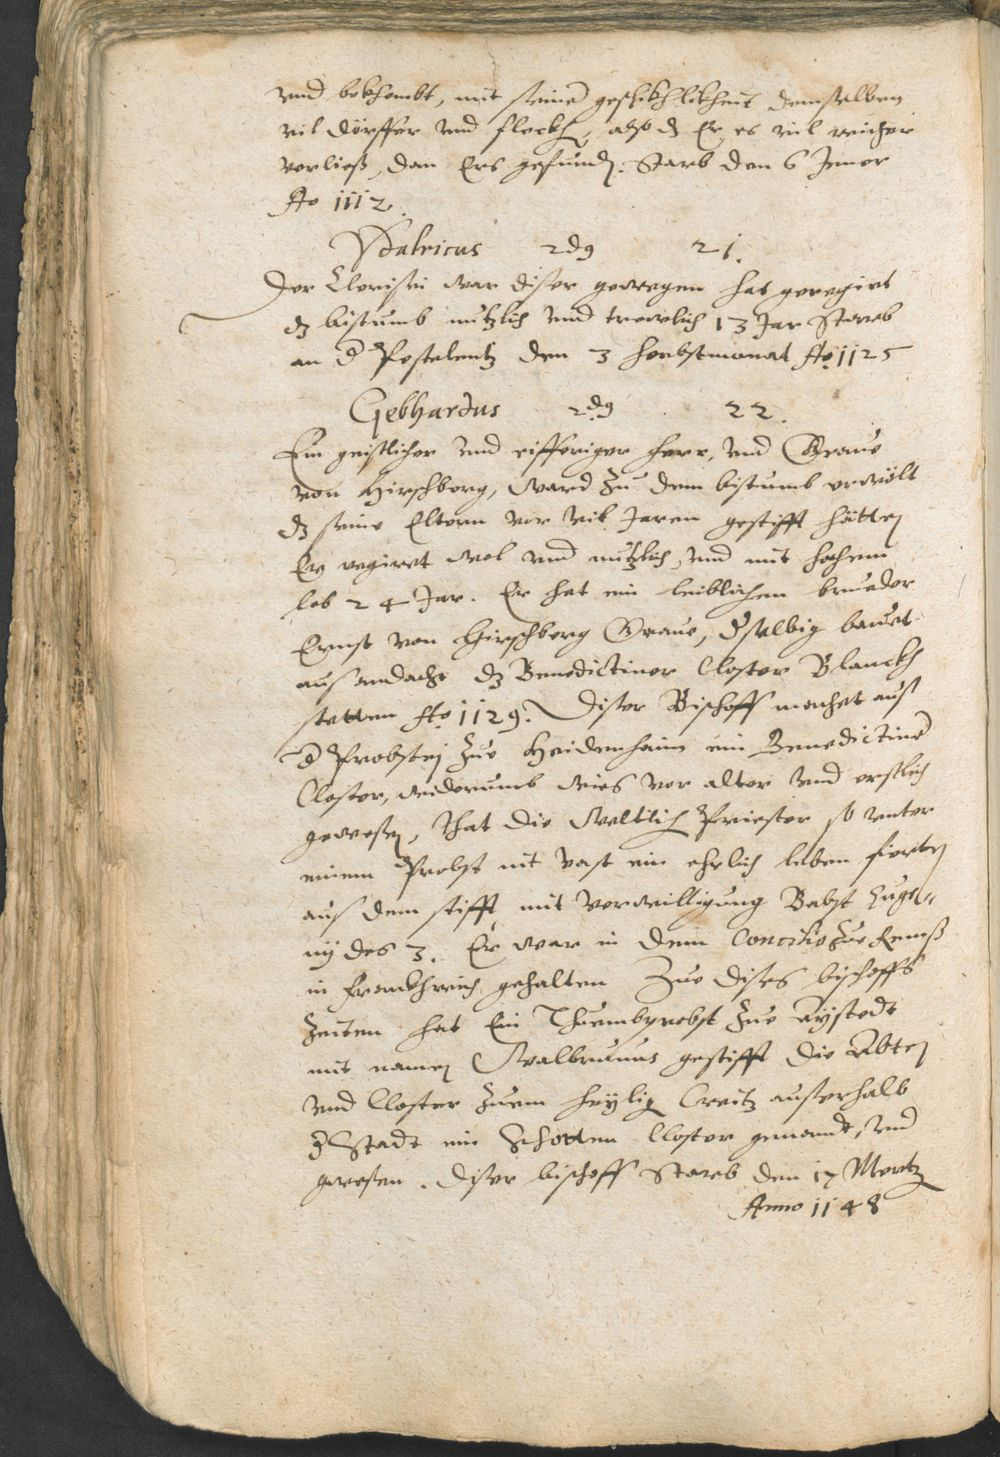 vnd bekhombt, mit seiner geschikhlikheit demselben
vil dörffer vnd fleckh, also dz Er es vil reicher
verließ, dan Ers gefunden. Starb den 6 Jener
Ao 1112.
Vdalricus 2dg 21.
Der Eberisti war diser gewesen hat geregirt
dz bistumb nutzlich vnd trewlich 13 Jar Starb
an der Pestelentz den 3 herbstmonat Ao 1125
Gebhardus 2dg 22.
Ein geistlicher vnd eifferiger herr, vnd Graue
von Hirschberg, Ward zu dem bistumb erwölt
dz seine Eltern vor vil Jaren gestifft hätten
Er regiret wol vnd nutzlich, vnd mit hohem
lob 24 Jar. Er hat ein leiblichen bruader
Ernst von Hirschberg Graue, derselbig bauet
aus andacht dz Benedictiner Closter Blanckh
stetten Ao 1129. Diser Bischoff machet aus
der Probstej zue Haidenhaim ein Benedictiner
Closter, widerumb wies vor alter vnd erstlich
gewesen, That die Weltlich Priester so vnter
einem Probst nit vast ein ehrlich leben fierten
aus dem stifft mit verwilligung Babst Euge-
nij des 3. Er war in dem Concilio zue Remß
in Franckhreich gehalten Zue dises bischoffs
Zeiten hat Ein Thuembprobst zue Aystedt
mit namen Walbrunus gestifft die Abtej
vnd Closter zuem heylig Creitz ausserhalb
der Stadt ein Schotten Closter genandt, vnd
gewesen. Diser bischoff Starb den 17 Mertz
Anno 1148